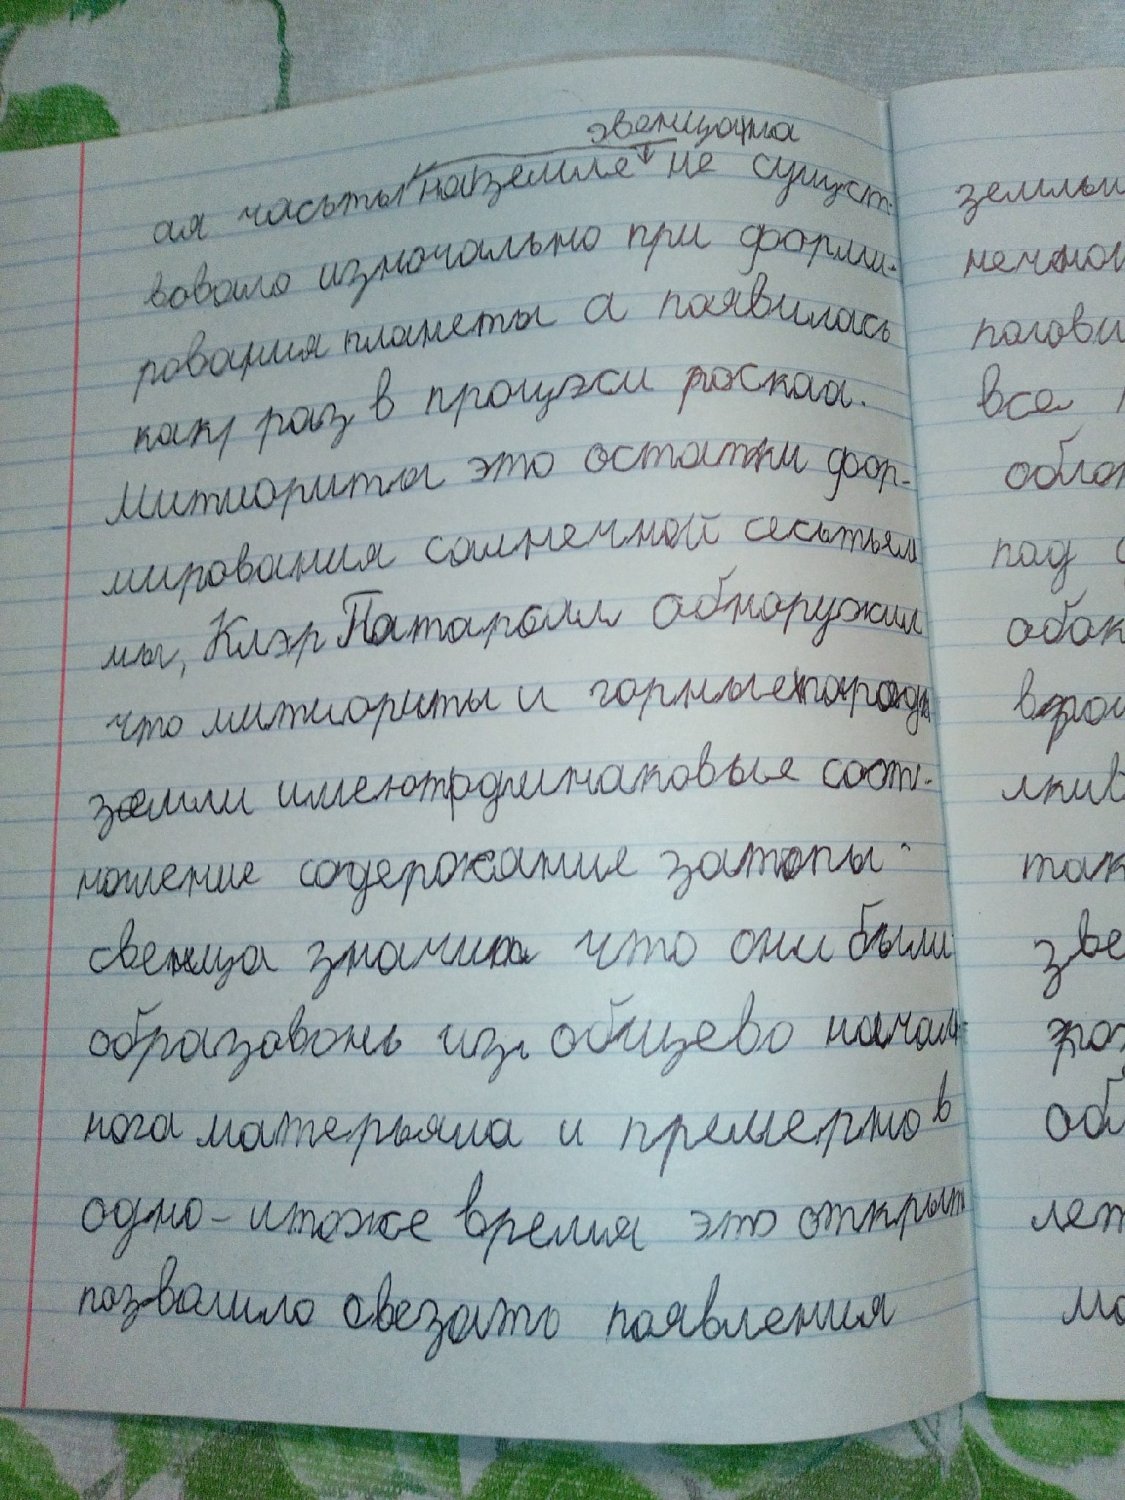 звенцаина
ая часьты на земле не сущест-
вовало изночально при форми-
рования планеты а появилась
как раз в процэси роскаа.
Митиориты это остатки фор-
мирования солнечной сесьтьем
мы, Клэр Патарсын обноружил
что митиориты и горные породы
земли имеют одинаковые соот-
ношение содержание затопы
свенца значит что они были
образовонь из общево началь
нога матерьяла и премерно в
одно-итоже время это открыт
позволило свезать появления
земльи
нечной
полови
все
облок
пад
обок
лкив
так
зве
об
лет
мо